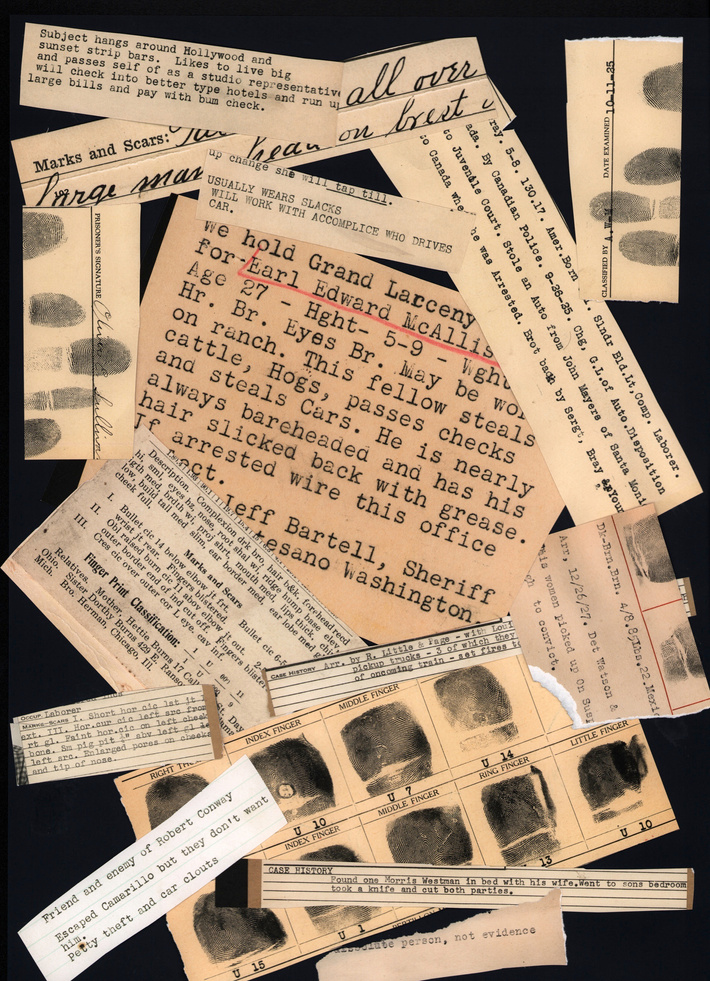 Subject hangs around Hollywood and
sunset strip bars. Likes to live big
and passes self of as a studio representative
will check into better type hotels and run up
large bills and pay with bum check.
all over
Marks and Scars:
on brest
large
up change she will tap till.
USUALLY WEARS SLACKS
WILL WORK WITH ACCOMPLICE WHO DRIVES
CAR.
DATE EXAMINED 10-11-25
CLASSIFIED BY
PRISONER'S SIGNATURE
5-8. 130.17. Amer.Born Slndr Bld.Lt.Comp. Laborer.
ada. By Canadian Police. 9-26-35. Chg, G.L.of Auto.Disposition
to Juvenile Court. Stole an Auto from John Mayers of Santa Moni
to Canada whe he was Arrested. Brot back by Sergt. Bray
We hold Grand Larceny
for-Earl Edward McAllis
Age 27 - Hght- 5-9 - Wght
Hr. Br. Eyes Br. May be wo
on ranch. This fellow steals
cattle, Hogs, passes checks
and steals Cars. He is nearly
always bareheaded and has his
hair slicked back with grease.
If arrested wire this office
ct.
Jeff Bartell, Sheriff
esano Washington.
Description. Complexion drk bro, hair blk,
Marks and Scars
I. Bullet cic 14 below elbow jt frt.
wrist jt rear. Fingers blistered.
II. Obl raised burn cic 11 above elbow jt out.
outer border end of ind cut off. Fingers
III. Cres cic over outer cor L eye. cav
Finger Print Classification:
Relatives. Mother, Hettie Burns 17
Ohio. Sister Dorthy Burns 429 E.
Mich. Bro. Herman, Chicago, Ill.
Dk-Brn.Brn.
Arr. 12/26/27. Det Watson &
woman picked up On
to convict.
CASE HISTORY Arr. by R. Little & Page - with
pickup trucks - 3 of which they
of oncoming train - set fires
OCCUP. Laborer
MARKS-SCARS I. Short hor cic
ext. III. Hor.cur cic left arc from
rt gl. Faint hor.cic on left cheek
bone. Sm pig pit
left arc. Enlarged pores on cheeks
and tip of nose.
INDEX FINGER
MIDDLE FINGER
U 14
U 7
U 10
RIGHT
INDEX FINGER
MIDDLE FINGER
RING FINGER
LITTLE FINGER
13
U 10
Friend and enemy of Robert Conway
Escaped Camarillo but they don't want
him.
Petty theft and car clouts
CASE HISTORY
Found one Morris Westman in bed with his wife.Went to sons bedroom
took a knife and cut both parties.
U 15
U 1
person, not evidence